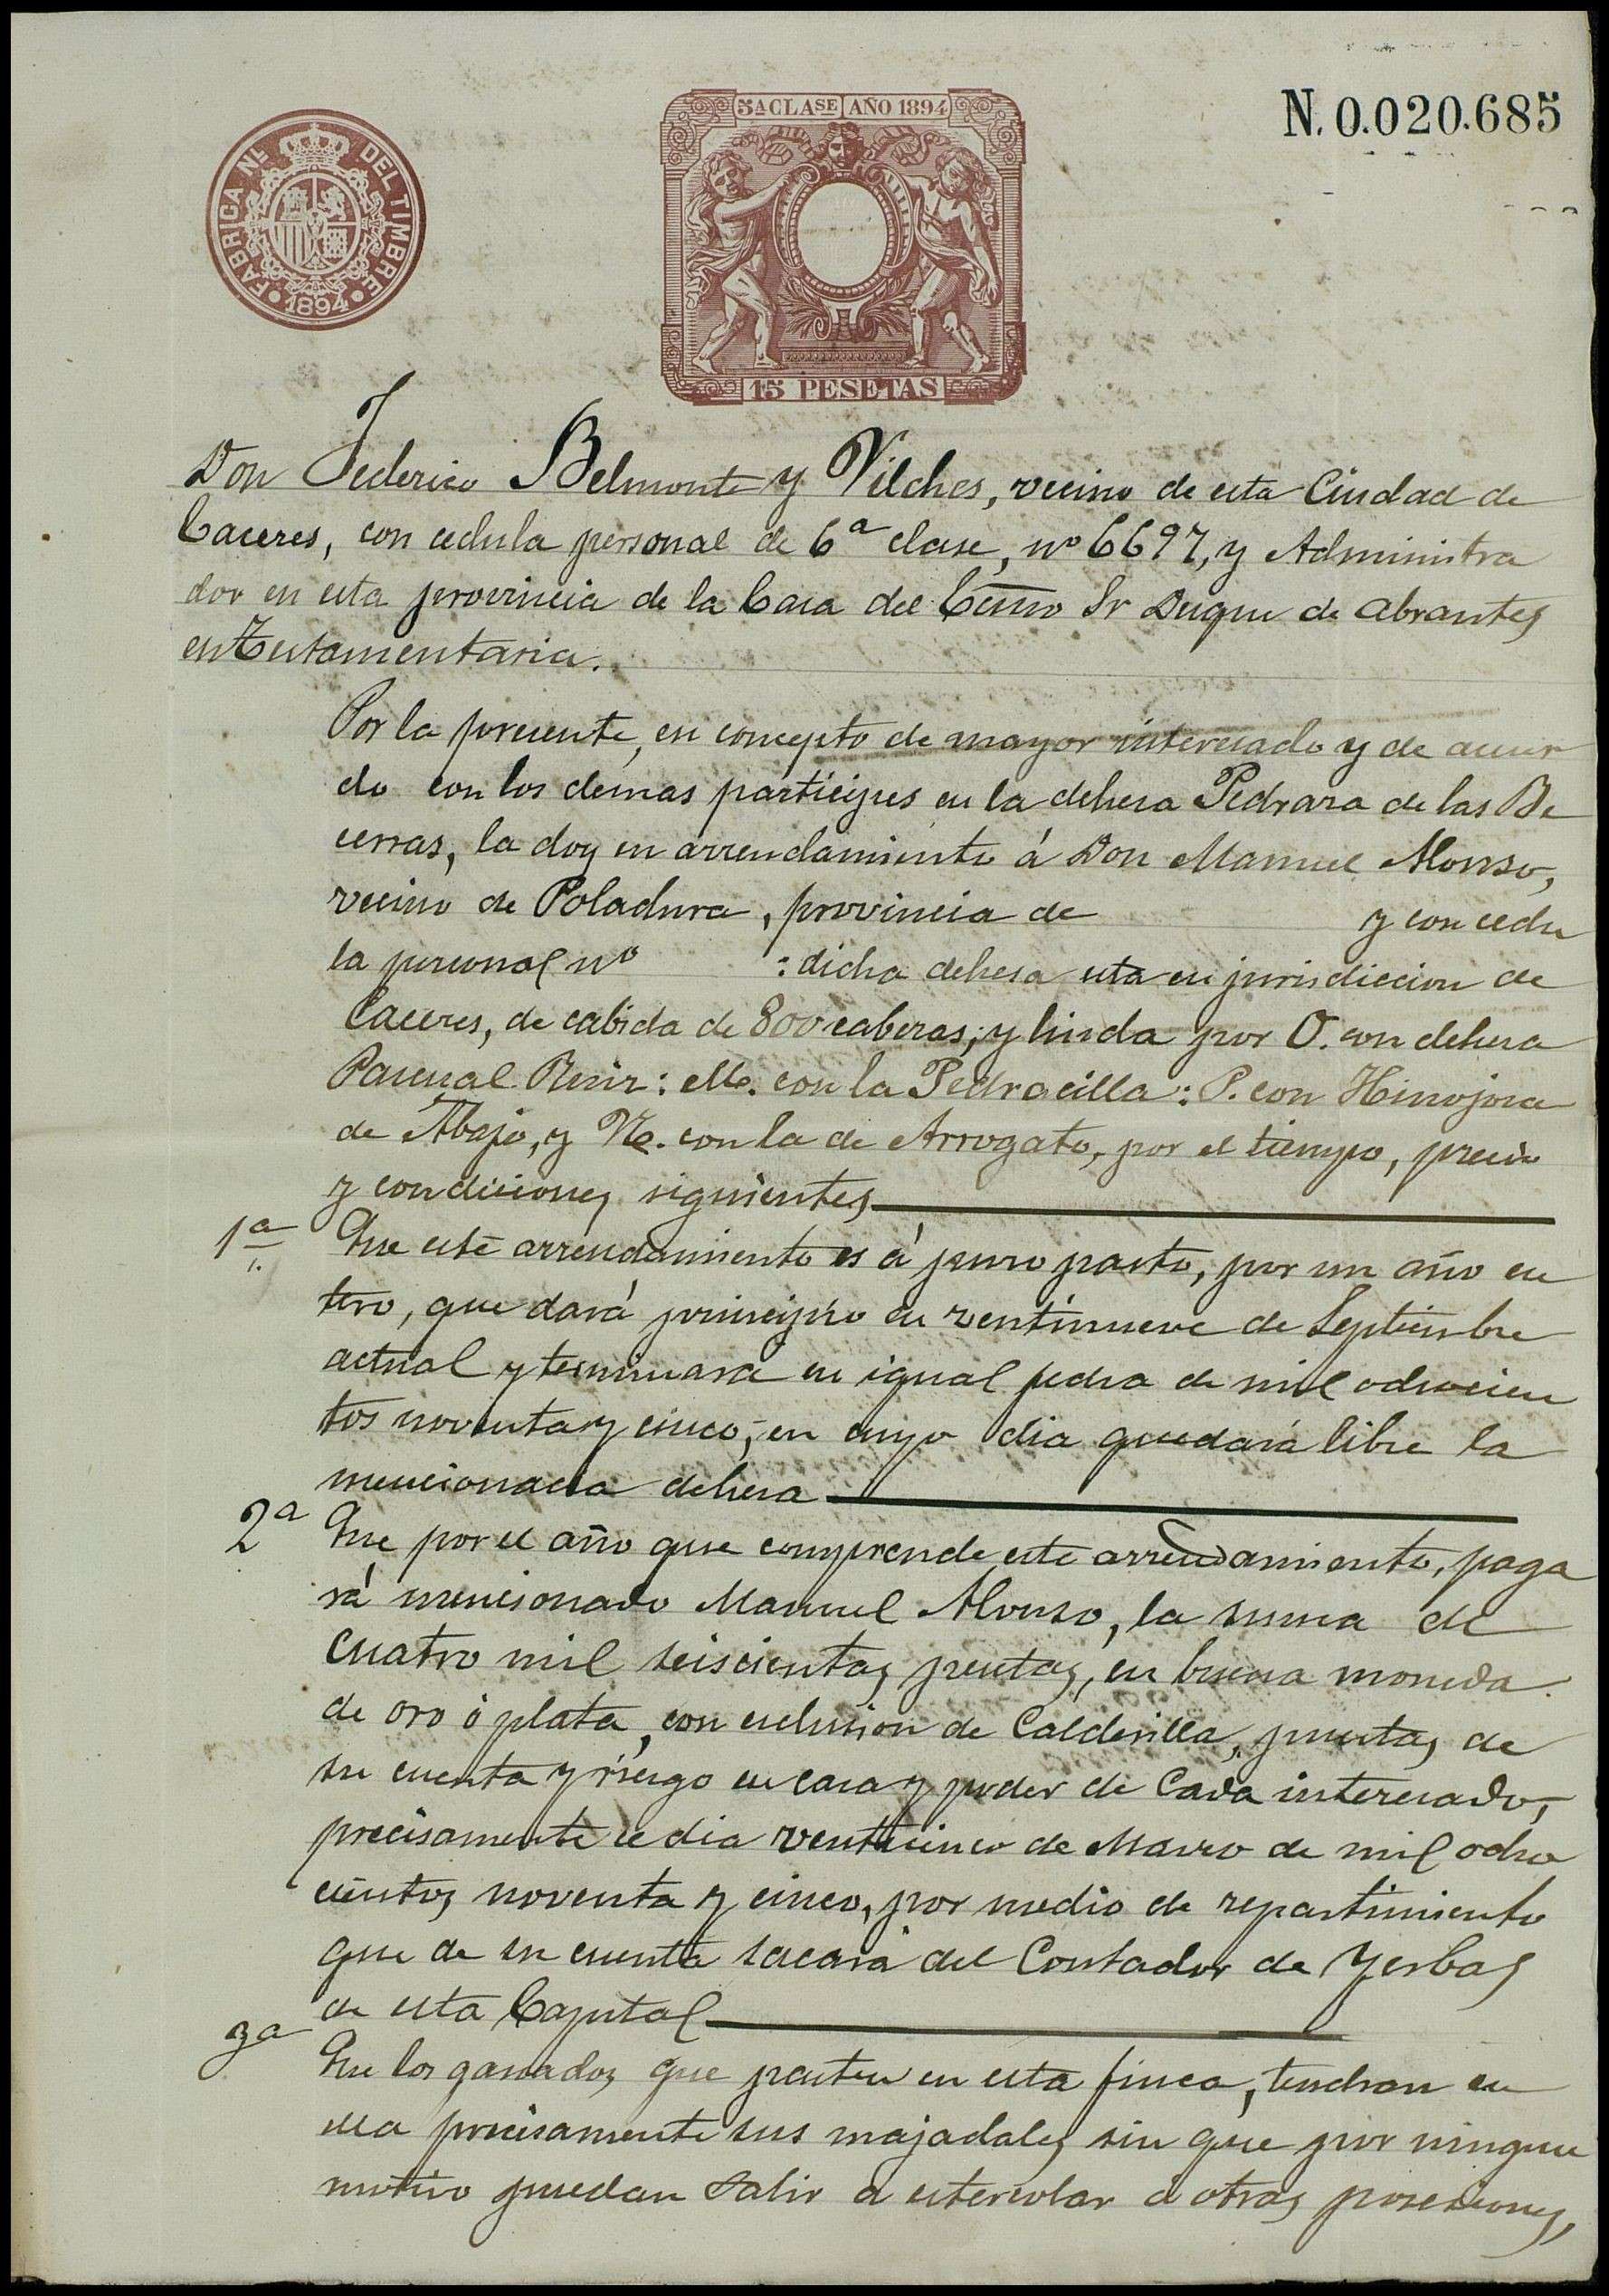 5A CLASE AÑO 1894
N. 0.020.685
FABRICA NAL DEL TIMBRE
1894
15 PESETAS
Don Federico Belmonte y Vilches, vecino de esta Ciudad de
Caceres, con cedula personal de 6ª clase, nº 6697, y Administra
dor en esta provincia de la Casa del Exmo Sr Duque de Abrantes
en Testamentaria.
Por la presente, en concepto de mayor interesado y de acuer
do con los demas participes en la dehesa Pedraza de las Be
cerras, la doy en arrendamiento á Don Manuel Alonso,
vecino de Poladura, provincia de y con cedu
la personal nº : dicha dehesa esta en jurisdiccion de
Caceres, de cabida de 800 cabezas; y linda por O. con dehesa
Pascual Ruiz: M. con la Pedracilla: P. con Hinojosa
de Abajo, y N. con la de Arrogato, por el tiempo, precio
y condiciones siguientes
1ª Que este arrendamiento es á puro pasto, por un año en
tero, que dará principio en ventinueve de Septiembre
actual y terminara en igual fecha de mil ochocien
tos noventa y cinco, en cuyo dia quedará libre la
mencionada dehesa
2ª Que por el año que comprende este arrendamiento, paga
rá mencionado Manuel Alonso, la suma de
cuatro mil seiscientas pesetas, en buena moneda
de oro ó plata, con esclusion de Calderilla, puestas de
su cuenta y riesgo en casa y poder de cada interesado,
precisamente el dia venticinco de Marzo de mil ocho
cientos noventa y cinco, por medio de repartimiento
que de su cuenta sacará del Contador de Yerbas
de esta Capital
3ª Que los ganados que pasten en esta finca, tendran en
ella precisamente sus majadales sin que por ningun
motivo puedan salir a estercolar á otras posesiones,